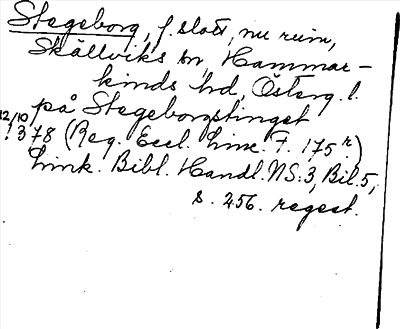 Stegeborg, f. slott, nu ruin,
Skällviks sn, Hammar-
kinds hd, Österg. l.
på Stegeborgstinget
12/10 1378 (Reg. Eccl. Linc. F. 175 r)
Link. Bibl. Handl. NS. 3, Bil. 5,
s. 256. regest.